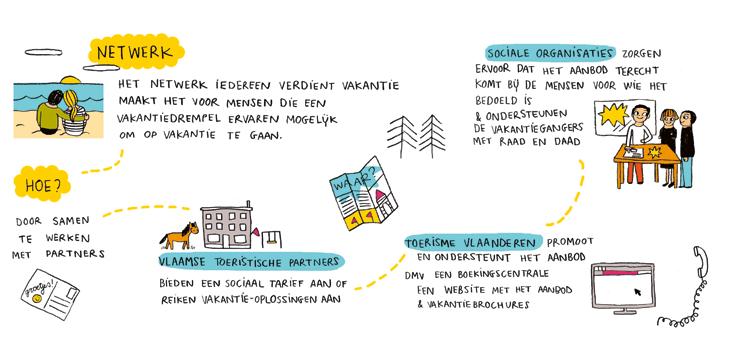 NETWERK
HET NETWERK IEDEREEN VERDIENT VAKANTIE
MAAKT HET VOOR MENSEN DIE EEN
VAKANTIEDREMPEL ERVAREN MOGELIJK
OM OP VAKANTIE TE GAAN.
HOE?
DOOR SAMEN
TE WERKEN
MET PARTNERS
groetjes!
VLAAMSE TOERISTISCHE PARTNERS
BIEDEN EEN SOCIAAL TARIEF AAN OF
REIKEN VAKANTIE-OPLOSSINGEN AAN
WAAR?
TOERISME VLAANDEREN PROMOOT
EN ONDERSTEUNT HET AANBOD
DMV EEN BOEKINGSCENTRALE
EEN WEBSITE MET HET AANBOD
& VAKANTIEBROCHURES
SOCIALE ORGANISATIES ZORGEN
ERVOOR DAT HET AANBOD TERECHT
KOMT BIJ DE MENSEN VOOR WIE HET
BEDOELD IS
& ONDERSTEUNEN
DE VAKANTIEGANGERS
MET RAAD EN DAAD